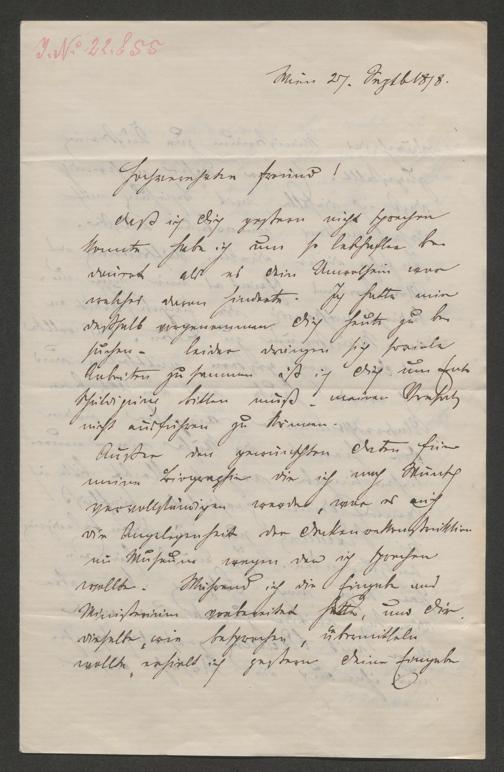 J. No 22.855
Wien 27. Septb 1878.
Hochverehrter Freund!
Daß ich Dich gestern nicht sprechen
konnte habe ich um so lebhafter be
dauert als es dein Unwohlsein war
welches daran hinderte. Ich hatte mir
deßhalb vorgenommen Dich heute zu be
suchen – leider drängen sich so viele
Arbeiten zusammen daß ich Dich um Ent
schuldigung bitten muß – meinen Vorsatz
nicht ausführen zu können.
Außer den gewünschten Daten für
meine Biographie die ich nach Wunsch
vervollständigen werde, war es auch
die Angelegenheit der Deckenrekonstruktion
im Museum wegen der ich sprechen
wollte. Während ich die Eingabe ans
Ministerium vorbereitet hatte, und Dir
dieselbe, wie besprochen, übermitteln
wollte, erhielt ich gestern Deine Eingabe